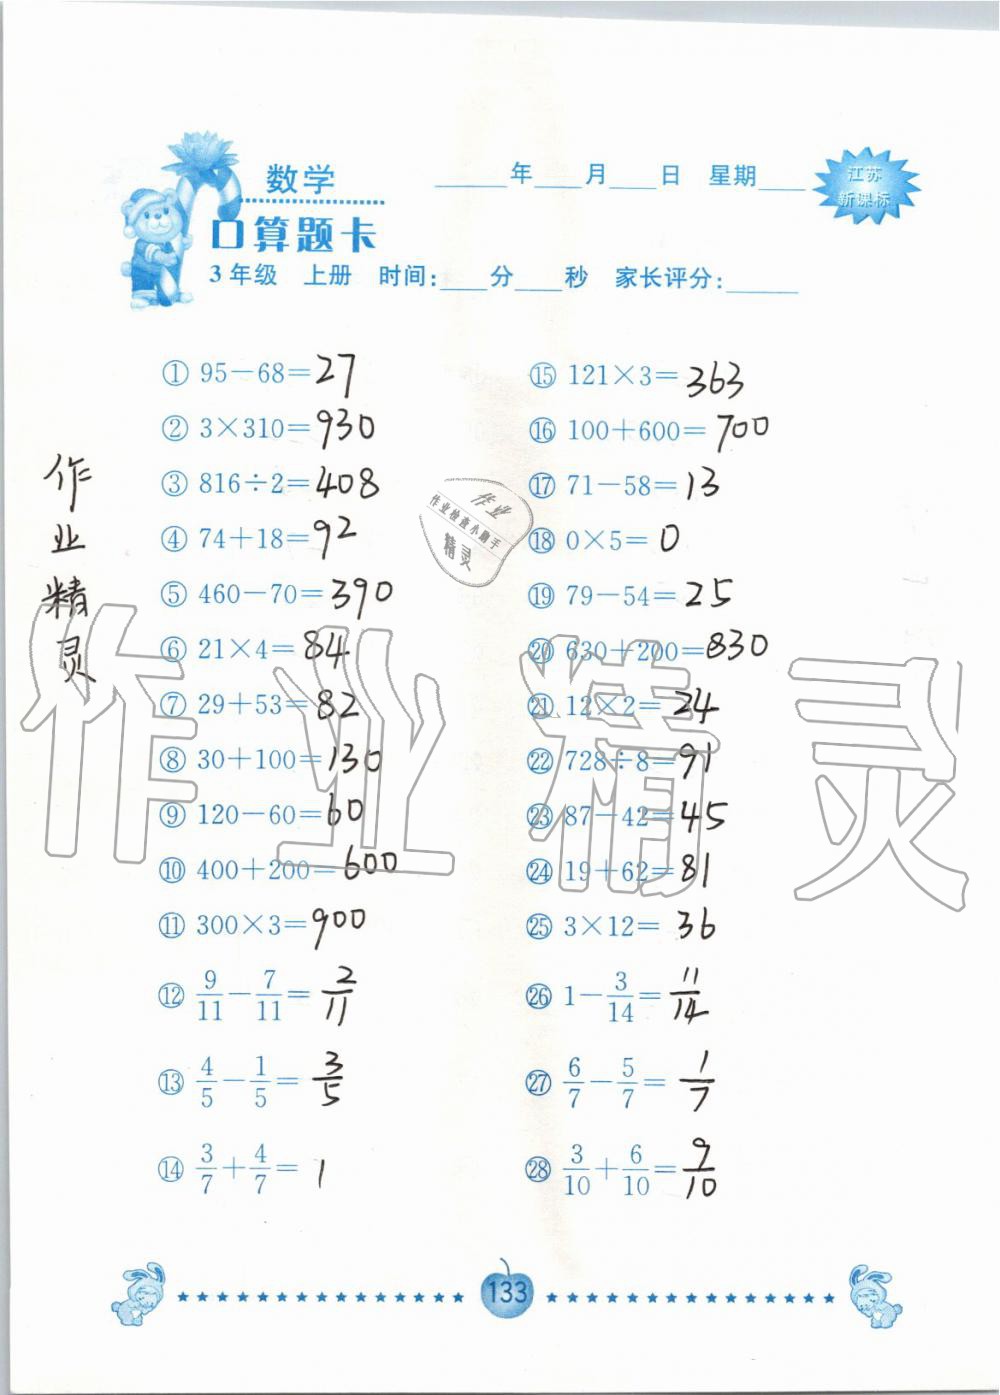 数学
口算题卡
____年___月___日 星期___
江苏
新课标
3年级 上册 时间:___分___秒 家长评分:_____
① 95－68＝27
② 3×310＝930
③ 816÷2＝408
④ 74＋18＝92
⑤ 460－70＝390
⑥ 21×4＝84
⑦ 29＋53＝82
⑧ 30＋100＝130
⑨ 120－60＝60
⑩ 400＋200＝600
⑪ 300×3＝900
⑫ 9/11－7/11＝2/11
⑬ 4/5－1/5＝3/5
⑭ 3/7＋4/7＝1
⑮ 121×3＝363
⑯ 100＋600＝700
⑰ 71－58＝13
⑱ 0×5＝0
⑲ 79－54＝25
⑳ 630＋200＝830
㉑ 12×2＝24
㉒ 728÷8＝91
㉓ 87－42＝45
㉔ 19＋62＝81
㉕ 3×12＝36
㉖ 1－3/14＝11/14
㉗ 6/7－5/7＝1/7
㉘ 3/10＋6/10＝9/10
作业精灵
作业
作业检查小助手
精灵
作业精灵
133